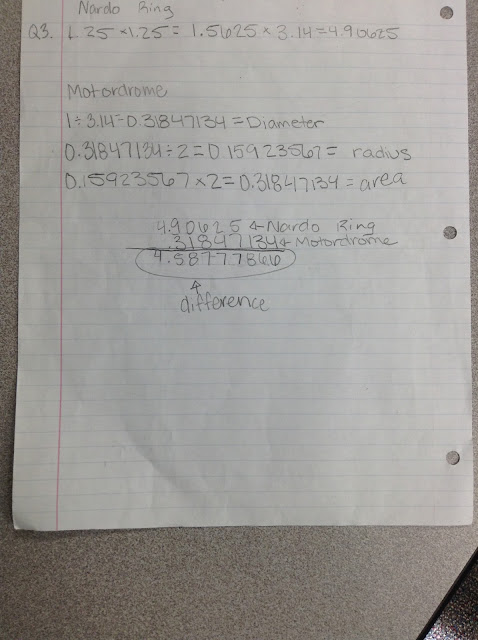 Nardo Ring
Q3. 1.25 × 1.25 = 1.5625 × 3.14 = 4.90625
Motordrome
1 ÷ 3.14 = 0.31847134 = Diameter
0.31847134 ÷ 2 = 0.15923567 = radius
0.15923567 × 2 = 0.31847134 = area
4.90625 ← Nardo Ring
.31847134 ← Motordrome
4.58777866
↑
difference